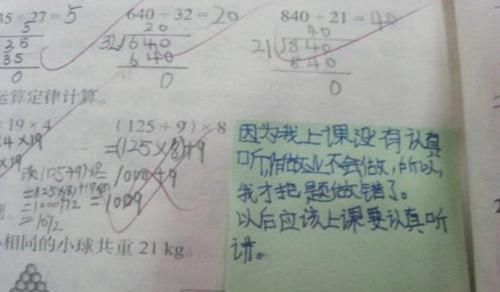 35÷27=5
640÷32=20
840÷21=40
5
20
40
32 640
21 840
35
640
840
0
0
0
运算定律计算。
×19×4
(125+9)×8
=(125×8)+9
=1000+9
=1009
(125+9)×8
=1000+72
=1072
因为我上课没有认真
听,作业不会做,所以,
我才把题做错了。
以后应该上课要认真听
讲。
相同的小球共重 21 kg。